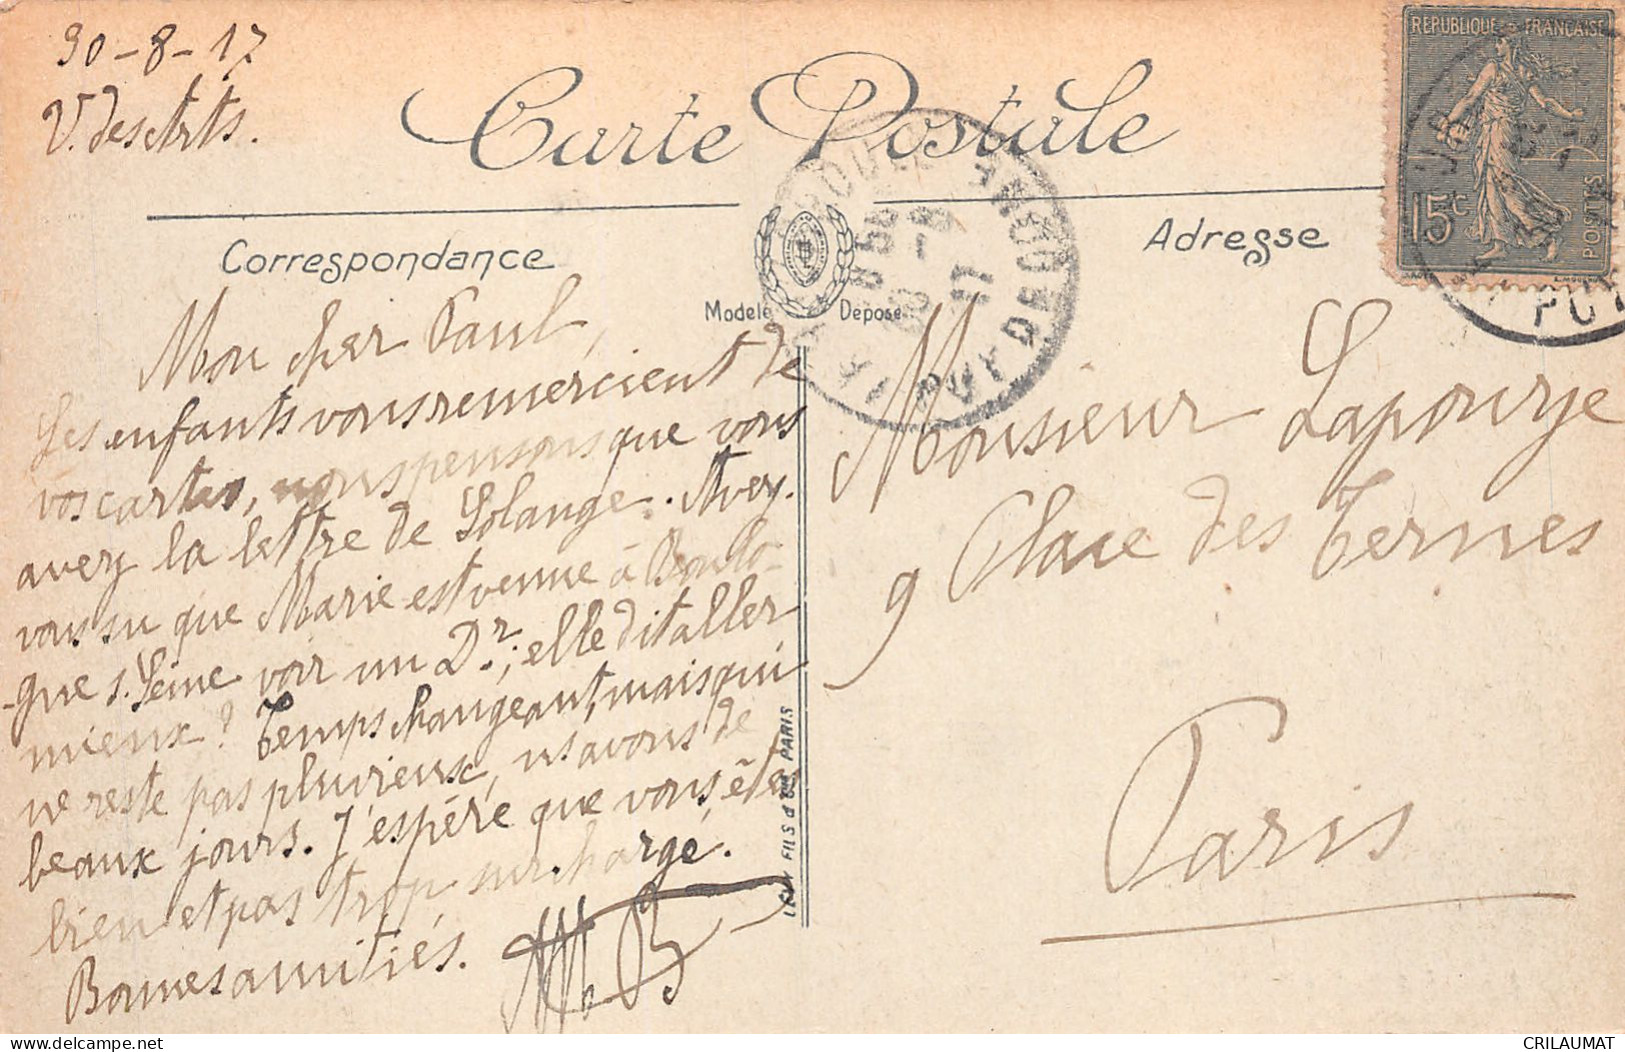 30-8-17
V. des Arts.
Carte Postale
REPUBLIQUE FRANÇAISE
15c
POSTES
Correspondance
Adresse
Modele Depose
Mon cher Paul,
Les enfants vous remercient de
vos cartes, nous pensons que vous
avez la lettre de Solange. Avez-
vous su que Marie est venue à Boulo-
gne s. Seine voir un Dr; elle dit aller
mieux? Temps changeant, mais qui
ne reste pas pluvieux, ns avons de
beaux jours. J'espére que vous êtes
bien et pas trop surchargé.
Bonnes amitiés. M. B
Monsieur Lapouzye
9 Place des Ternes
Paris
LEVY FILS & Cie PARIS
CRILAUMAT